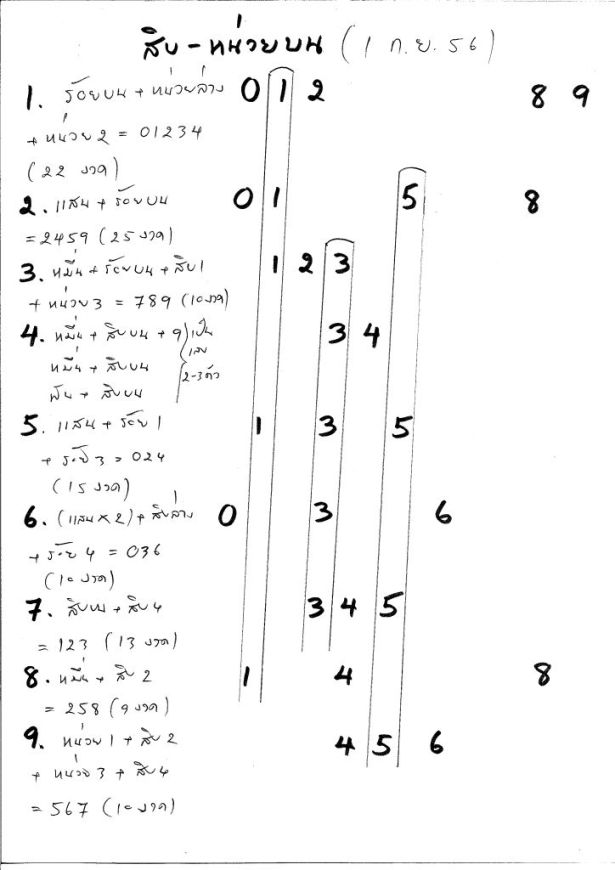 สิบ - หน่วยบน (1 ก.ย. 56)
1. ร้อยบน + หน่วยล่าง 0 1 2 8 9
+ หน่วย 2 = 01234
(22 งวด)
2. แสน + ร้อยบน 0 1 5 8
= 2459 (25 งวด)
3. หมื่น + ร้อยบน + สิบ 1 1 2 3
+ หน่วย 3 = 789 (10 งวด)
4. หมื่น + สิบบน + 9 เป็น 3 4
เลข
หมื่น + สิบบน 2-3 ตัว
พัน + สิบบน
5. แสน + ร้อย 1 1 3 5
+ ร้อย 3 = 024
(15 งวด)
6. (แสน x 2) + สิบล่าง 0 3 6
+ ร้อย 4 = 036
(10 งวด)
7. สิบบน + สิบ 4 3 4 5
= 123 (13 งวด)
8. หมื่น + สิบ 2 1 4 8
= 258 (9 งวด)
9. หน่วย 1 + สิบ 2 4 5 6
+ หน่วย 3 + สิบ 4
= 567 (10 งวด)